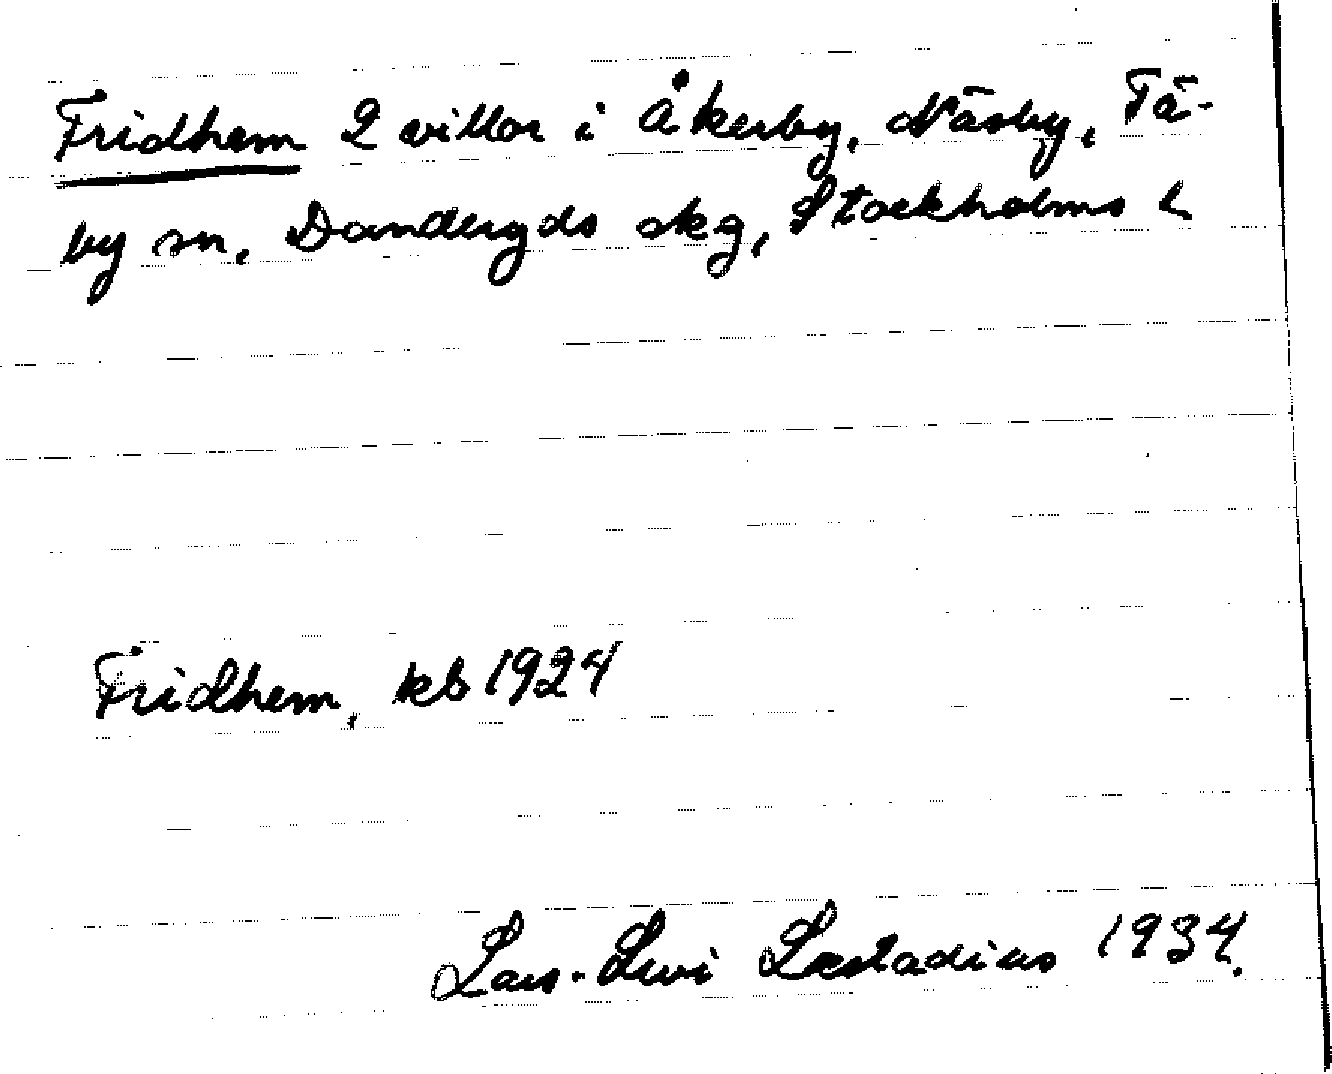 Fridhem 2 villor i Åkerby, Näsby, Tä-
by sn, Danderyds skg, Stockholms l.
Fridhem, kb 1924
Lars-Levi Læstadius 1934.